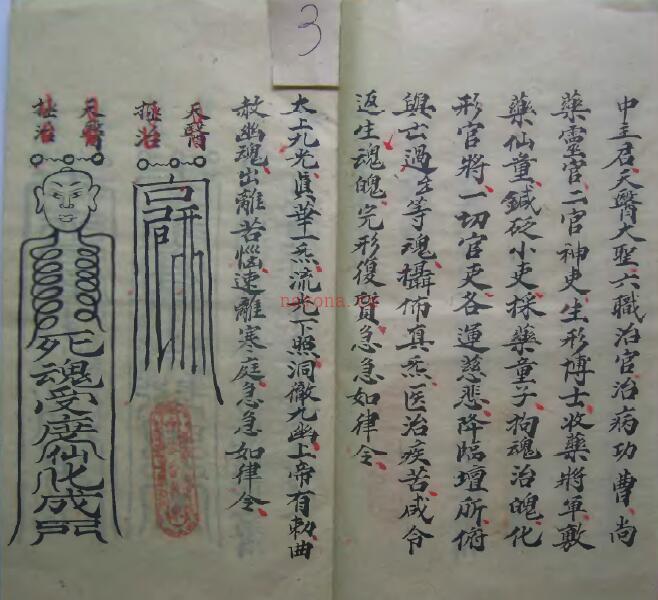 中主君天醫大聖六職治官治病功曹尚
藥靈官二官神吏生形博士收藥將軍敷
藥仙童鍼砭小吏採藥童子拘魂治魄化
形官將一切官吏各運慈悲降臨壇所俯
與亡過△等魂攝佈真炁医治疾苦咸令
返生魂魄完形復質急急如律令
太上九光真華一炁流光下照洞徹九幽上帝有勅曲
赦幽魂出離苦惱速離寒庭急急如律令
3
天醫
拯治
天醫
拯治
死魂受度仙化成